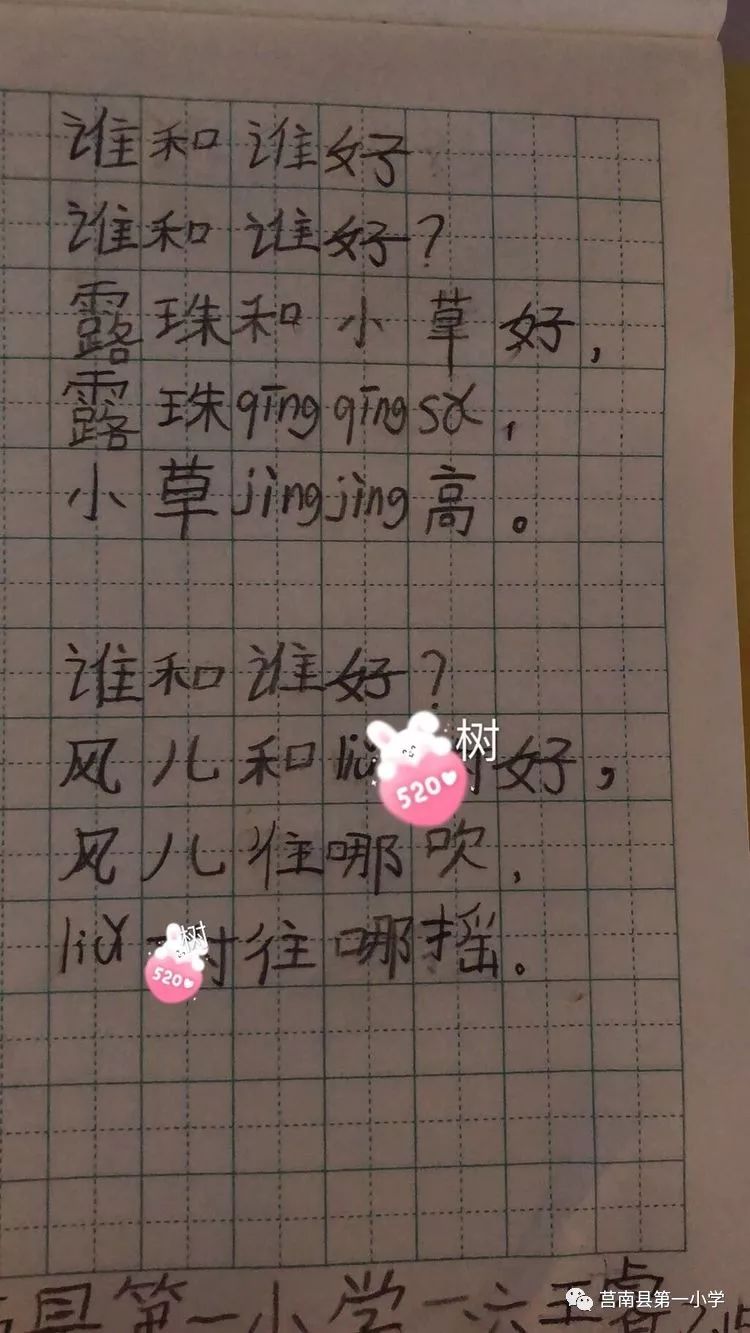 谁和谁好
谁和谁好？
露珠和小草好，
露珠qīngqīngsɑ，
小草jìngjìng高。
谁和谁好？
风儿和liǔ树好，
风儿往哪吹，
liɑ树往哪摇。
520
520
县第一小学一六王睿
莒南县第一小学